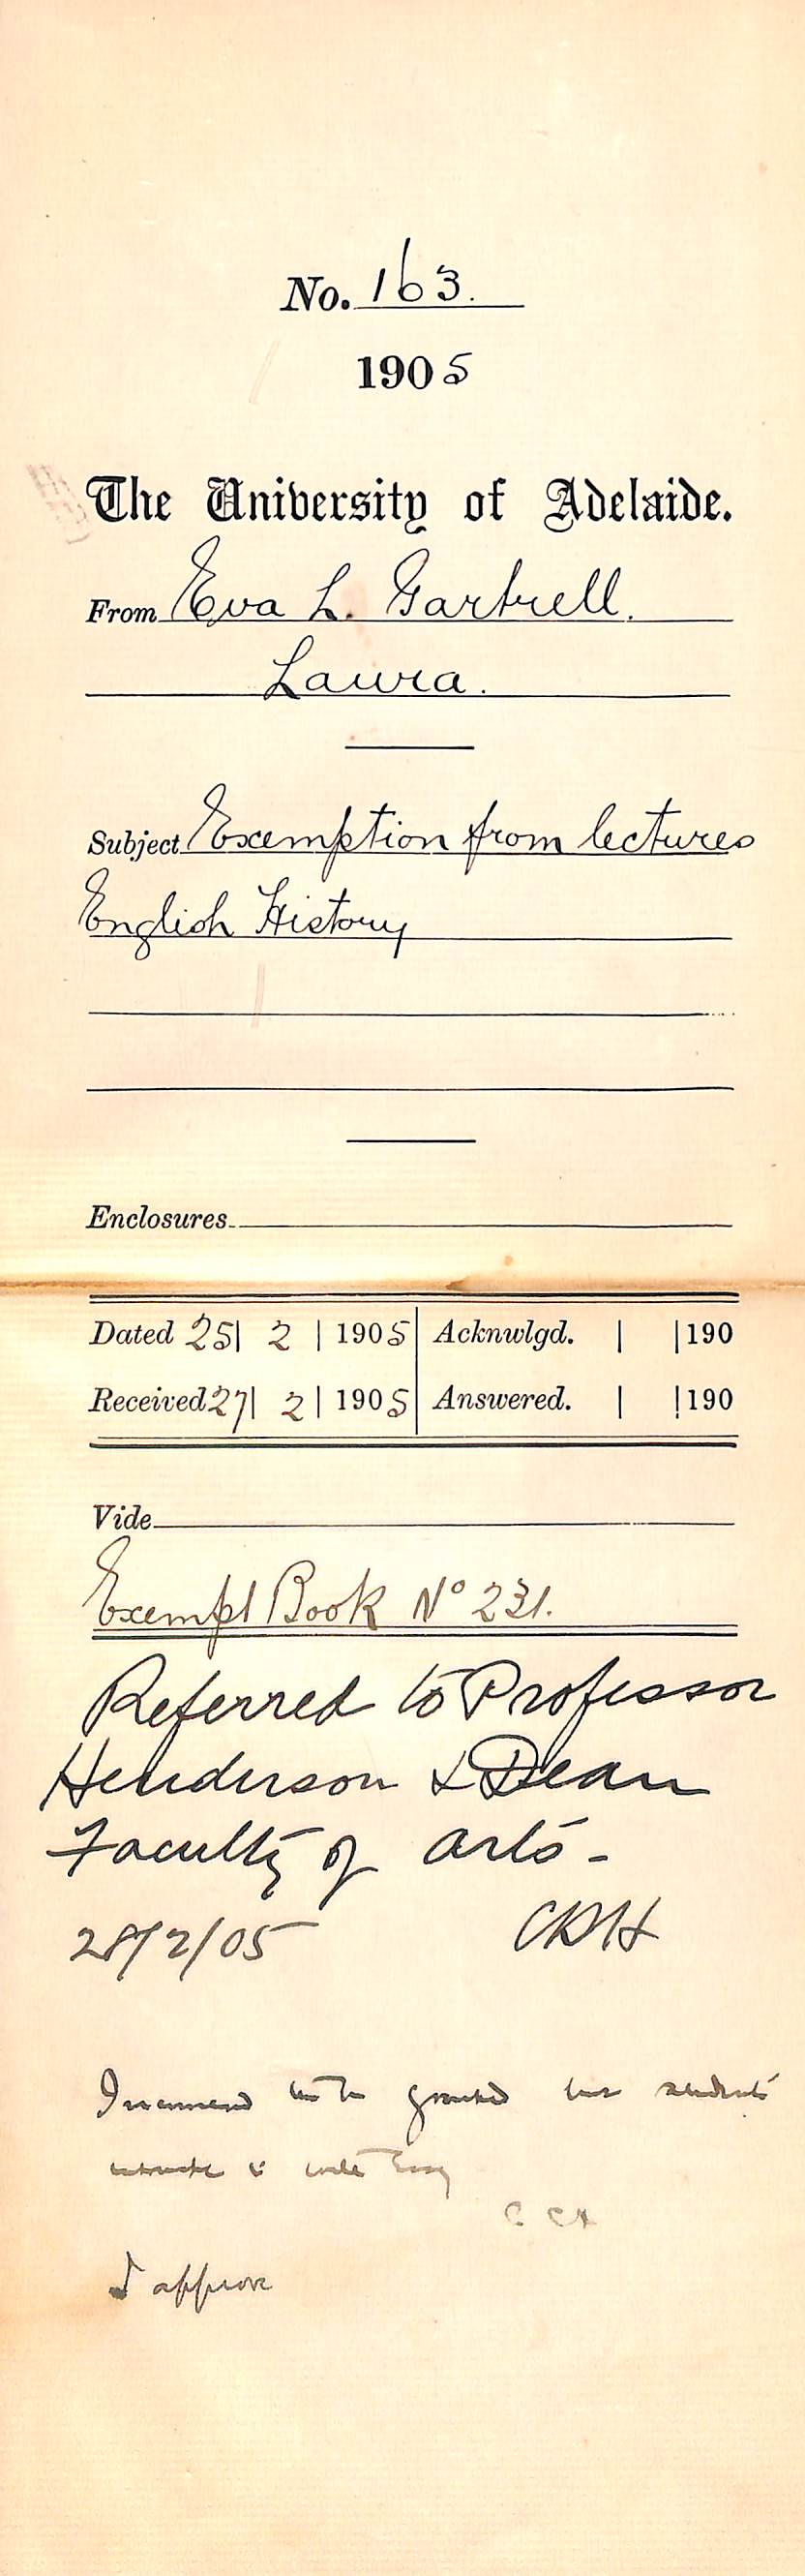 No. 163.
1905
The University of Adelaide.
From Eva L. Gartrell.
Laura.
Subject Exemption from lectures
English History
Enclosures
Dated 25| 2 | 1905 Acknwlgd. | |190
Received 27| 2 | 1905 Answered. | |190
Vide
Exempt Book No 231.
Referred to Professor
Henderson & Dean
Faculty of Arts -
28/2/05 CRH
I recommend granted but students
I approve